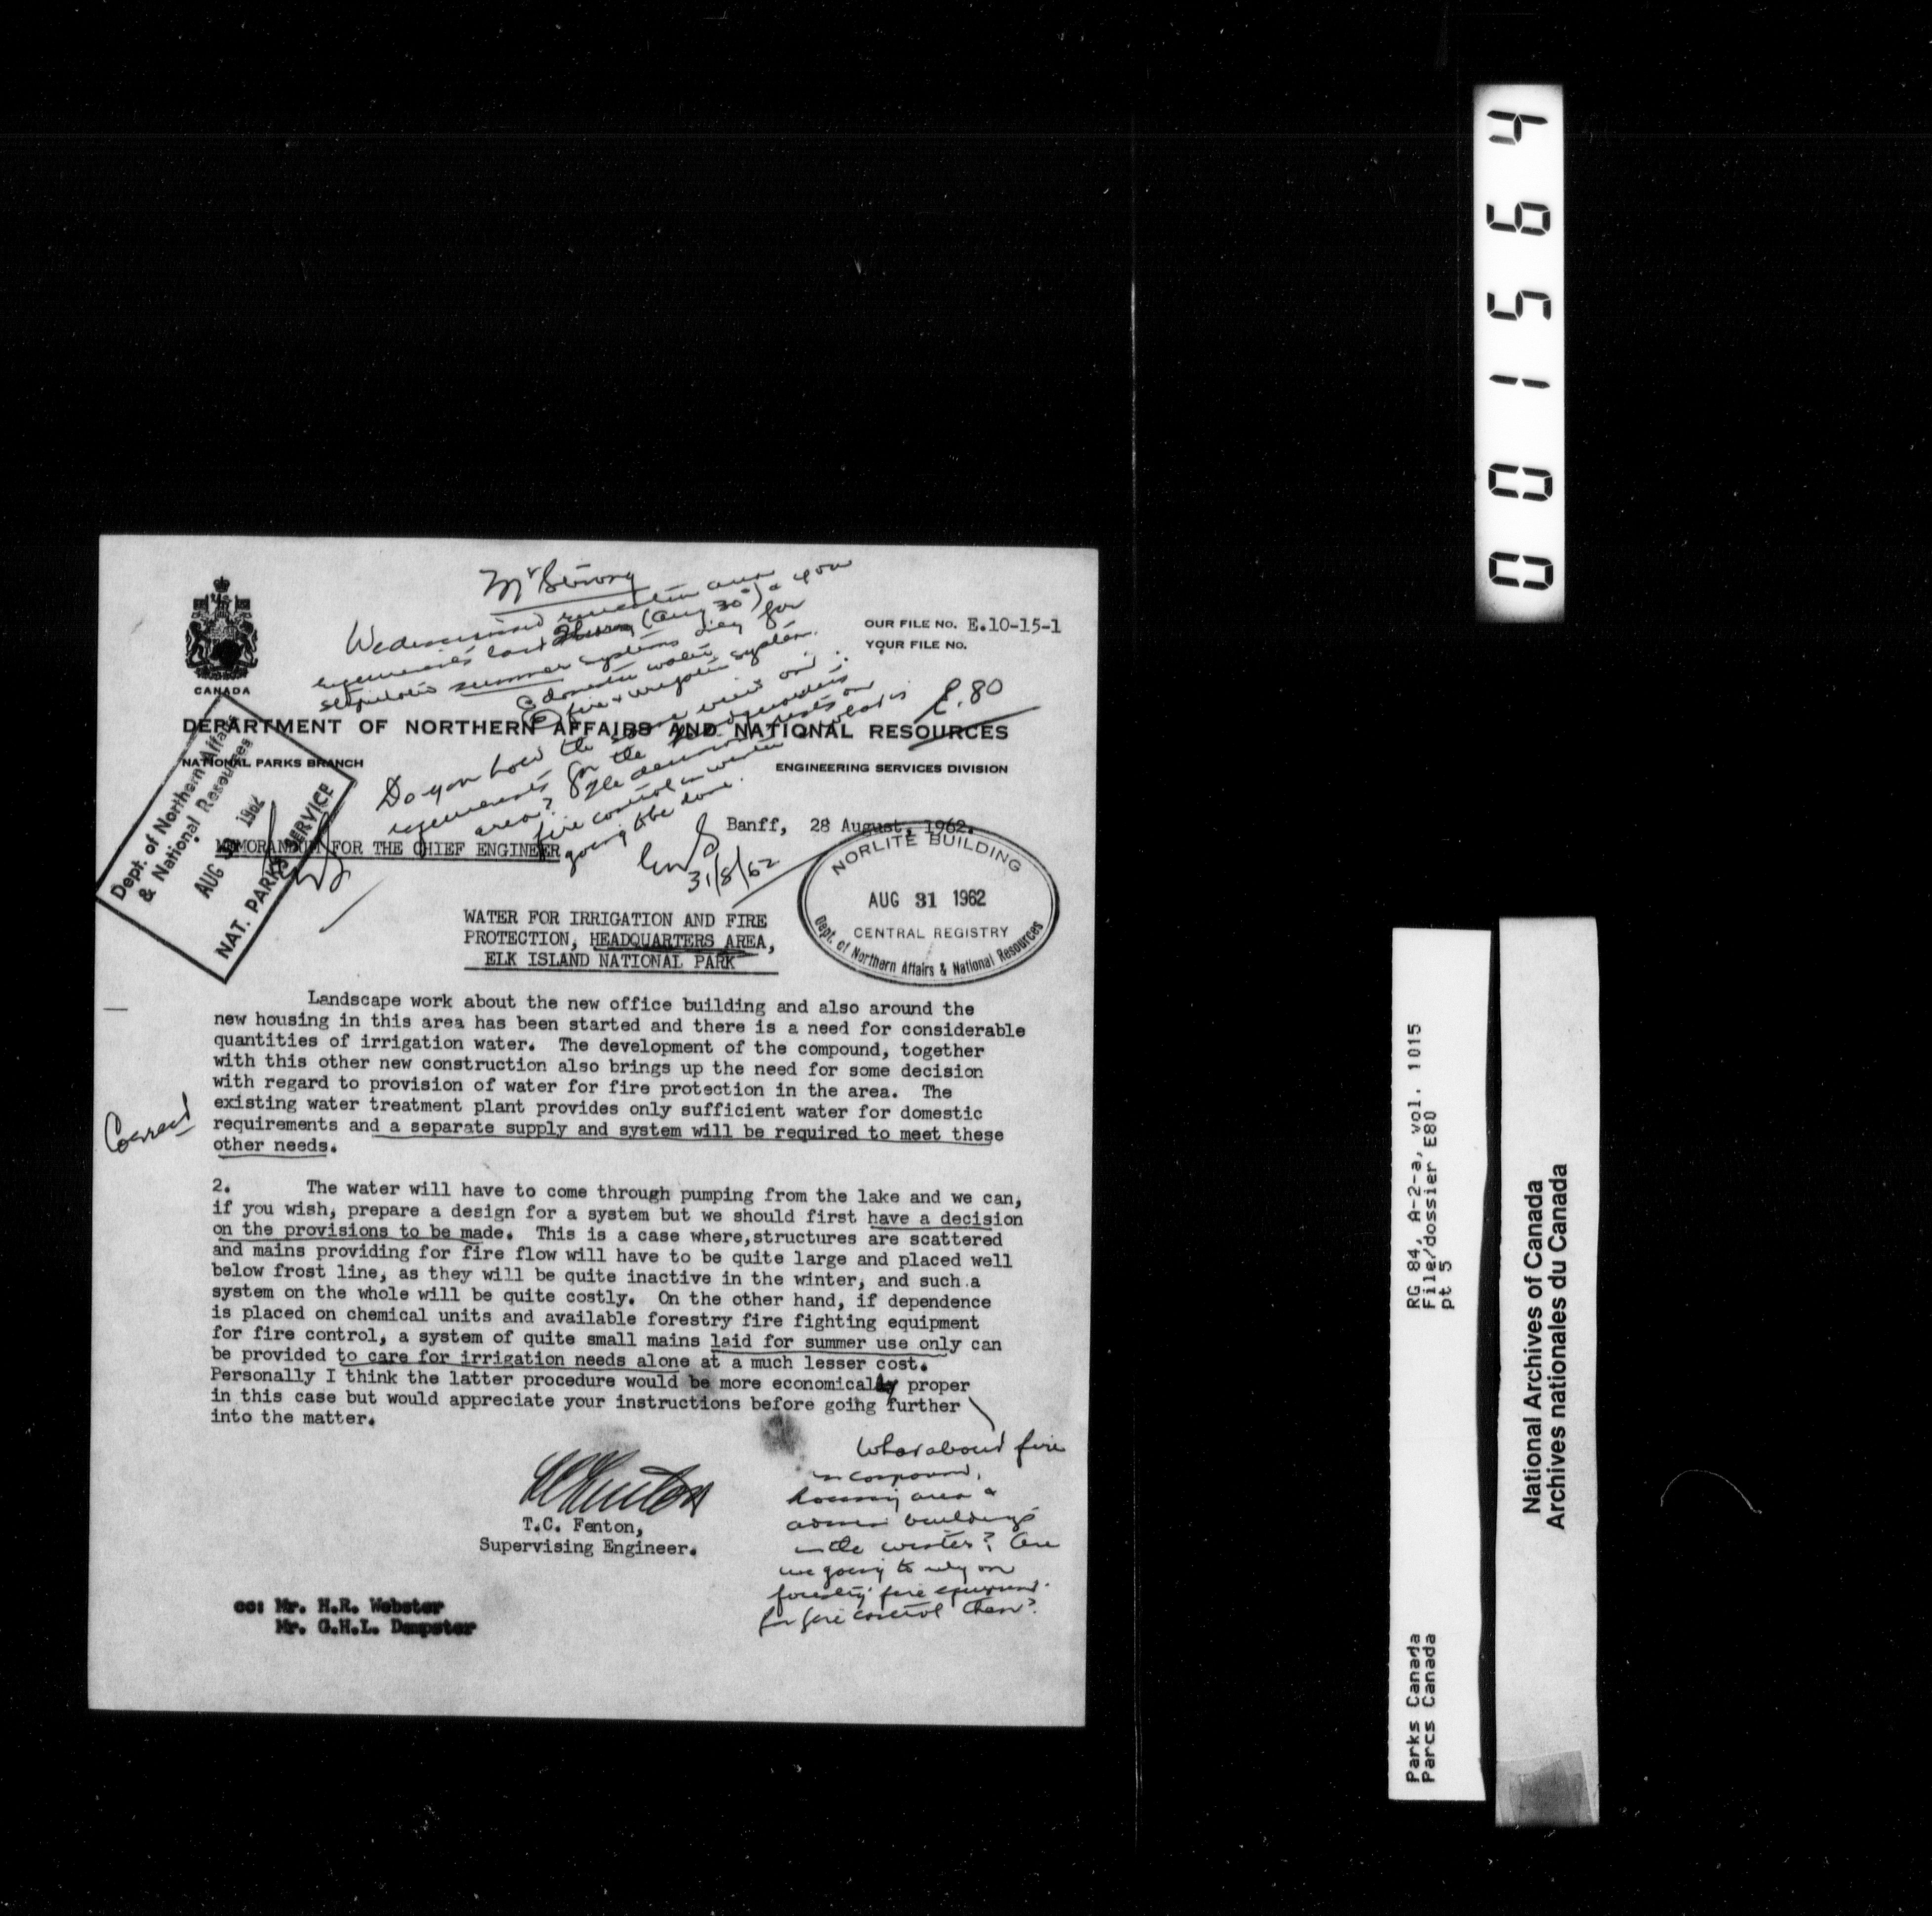 Mr Strong
We discussed recreation area
requirements last Thurs (Aug 30th) & you
stipulated summer systems only for
① domestic water
② fire & irrigation system.
Do you hold the same view on
requirements for the headquarters
area?
fire control in winter & what is
going to be done.
31/8/62
CANADA
OUR FILE NO. E.10-15-1
YOUR FILE NO.
E.80
DEPARTMENT OF NORTHERN AFFAIRS AND NATIONAL RESOURCES
NATIONAL PARKS BRANCH
ENGINEERING SERVICES DIVISION
Dept. of Northern Affairs
& National Resources
AUG 1962
NAT. PARKS SERVICE
Banff, 28 August, 1962.
MEMORANDUM FOR THE CHIEF ENGINEER
NORLITE BUILDING
AUG 31 1962
CENTRAL REGISTRY
Dept. of Northern Affairs & National Resources
WATER FOR IRRIGATION AND FIRE
PROTECTION, HEADQUARTERS AREA,
ELK ISLAND NATIONAL PARK
Landscape work about the new office building and also around the
new housing in this area has been started and there is a need for considerable
quantities of irrigation water. The development of the compound, together
with this other new construction also brings up the need for some decision
with regard to provision of water for fire protection in the area. The
existing water treatment plant provides only sufficient water for domestic
requirements and a separate supply and system will be required to meet these
other needs.
Correct
2. The water will have to come through pumping from the lake and we can,
if you wish, prepare a design for a system but we should first have a decision
on the provisions to be made. This is a case where,structures are scattered
and mains providing for fire flow will have to be quite large and placed well
below frost line, as they will be quite inactive in the winter, and such a
system on the whole will be quite costly. On the other hand, if dependence
is placed on chemical units and available forestry fire fighting equipment
for fire control, a system of quite small mains laid for summer use only can
be provided to care for irrigation needs alone at a much lesser cost.
Personally I think the latter procedure would be more economically proper
in this case but would appreciate your instructions before going further
into the matter.
What about fire
in compound,
housing area &
admin buildings
in the winter? Are
we going to rely on
forestry fire equipment
for fire control then?
T.C. Fenton
T.C. Fenton,
Supervising Engineer.
cc: Mr. H.R. Webster
Mr. G.H.L. Dempster
001564
RG 84, A-2-a, vol. 1015
File/dossier E80
pt 5
Parks Canada
Parcs Canada
National Archives of Canada
Archives nationales du Canada